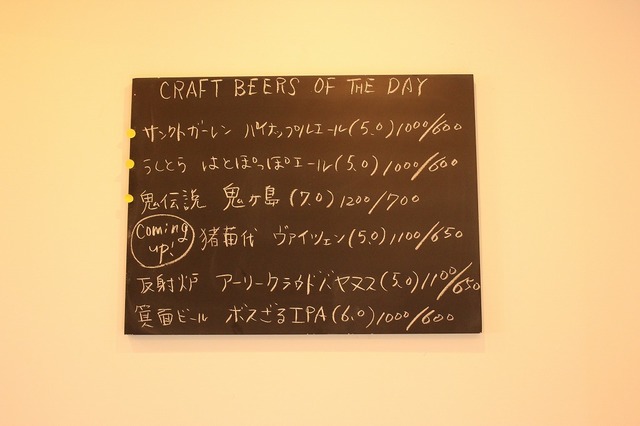 CRAFT BEERS OF THE DAY
サンクトガーレン パイナップルエール(5.0)1000/600
うしとら はとぽっぽエール(5.0)1000/600
鬼伝説 鬼ヶ島(7.0)1200/700
Coming up! 猪苗代 ヴァイツェン(5.0)1100/650
反射炉 アーリークラウドバヤヌス(5.0)1100/650
箕面ビール ボスざるIPA(6.0)1000/600